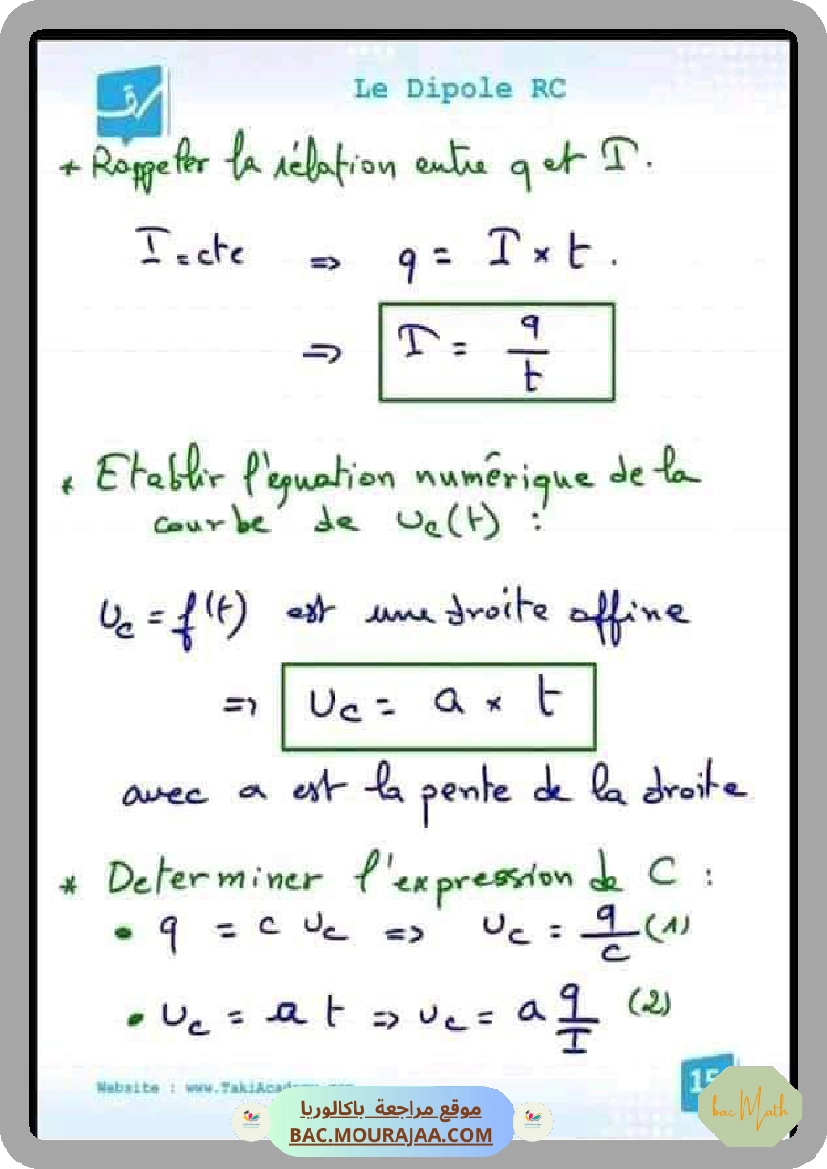 Le Dipole RC
+ Rappeler la rélation entre q et I.
I = cte => q = I × t .
=> I = q/t
* Etablir l'équation numérique de la
courbe de Uc(t) :
Uc = f(t) est une droite affine
=> Uc = a × t
avec a est la pente de la droite
* Determiner l'expression de C :
• q = C Uc => Uc = q/C (1)
• Uc = a t => Uc = a q/I (2)
Website :
15
موقع مراجعة باكالوريا
BAC.MOURAJAA.COM
bac Math